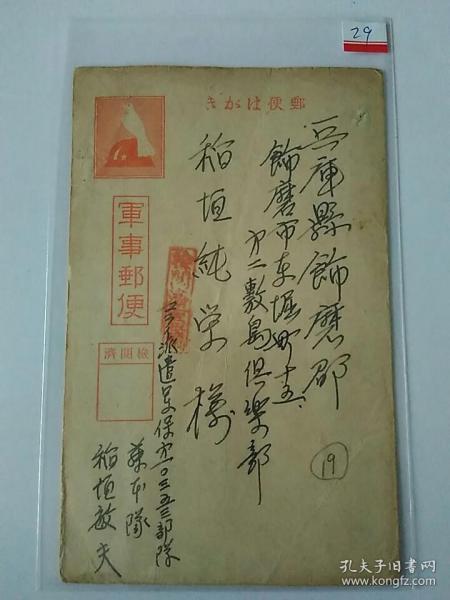 29
郵便はがき
兵庫縣飾磨郡
飾磨市東堀町十五、
才二敷島倶楽部
稲垣純栄様
軍事郵便
檢閲濟
派遣呂保才一〇三五三部隊
藤本隊
稲垣敏夫
19
孔夫子旧书网
www.kongfz.com